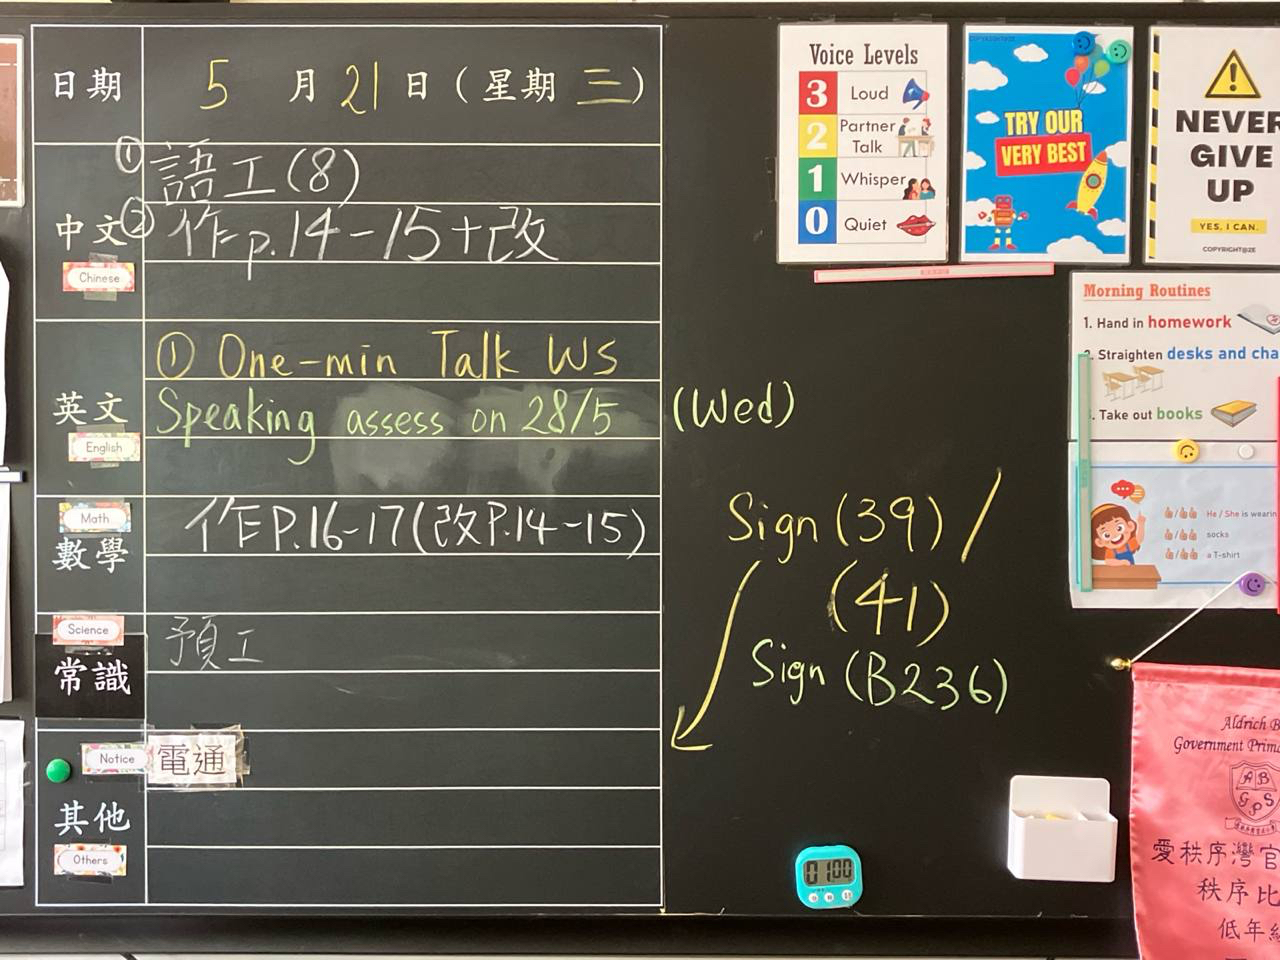 日期 5 月 21 日 (星期 三)
中文
Chinese
① 語工(8)
② 作p.14-15+改
英文
English
① One-min Talk WS
Speaking assess on 28/5 (Wed)
Math
數學
作P.16-17(改P.14-15)
Science
常識
預工
Notice
電通
其他
Others
Sign (39) /
(41)
Sign (B236)
Voice Levels
3 Loud
2 Partner Talk
1 Whisper
0 Quiet
COPYRIGHT@ZE
TRY OUR
VERY BEST
NEVER
GIVE
UP
YES, I CAN.
COPYRIGHT@ZE
Morning Routines
1. Hand in homework
2. Straighten desks and cha
3. Take out books
He / She is wearin
socks
a T-shirt
01:00
Aldrich B
Government Prim
A B
G P S
愛秩序灣官
秩序比
低年級